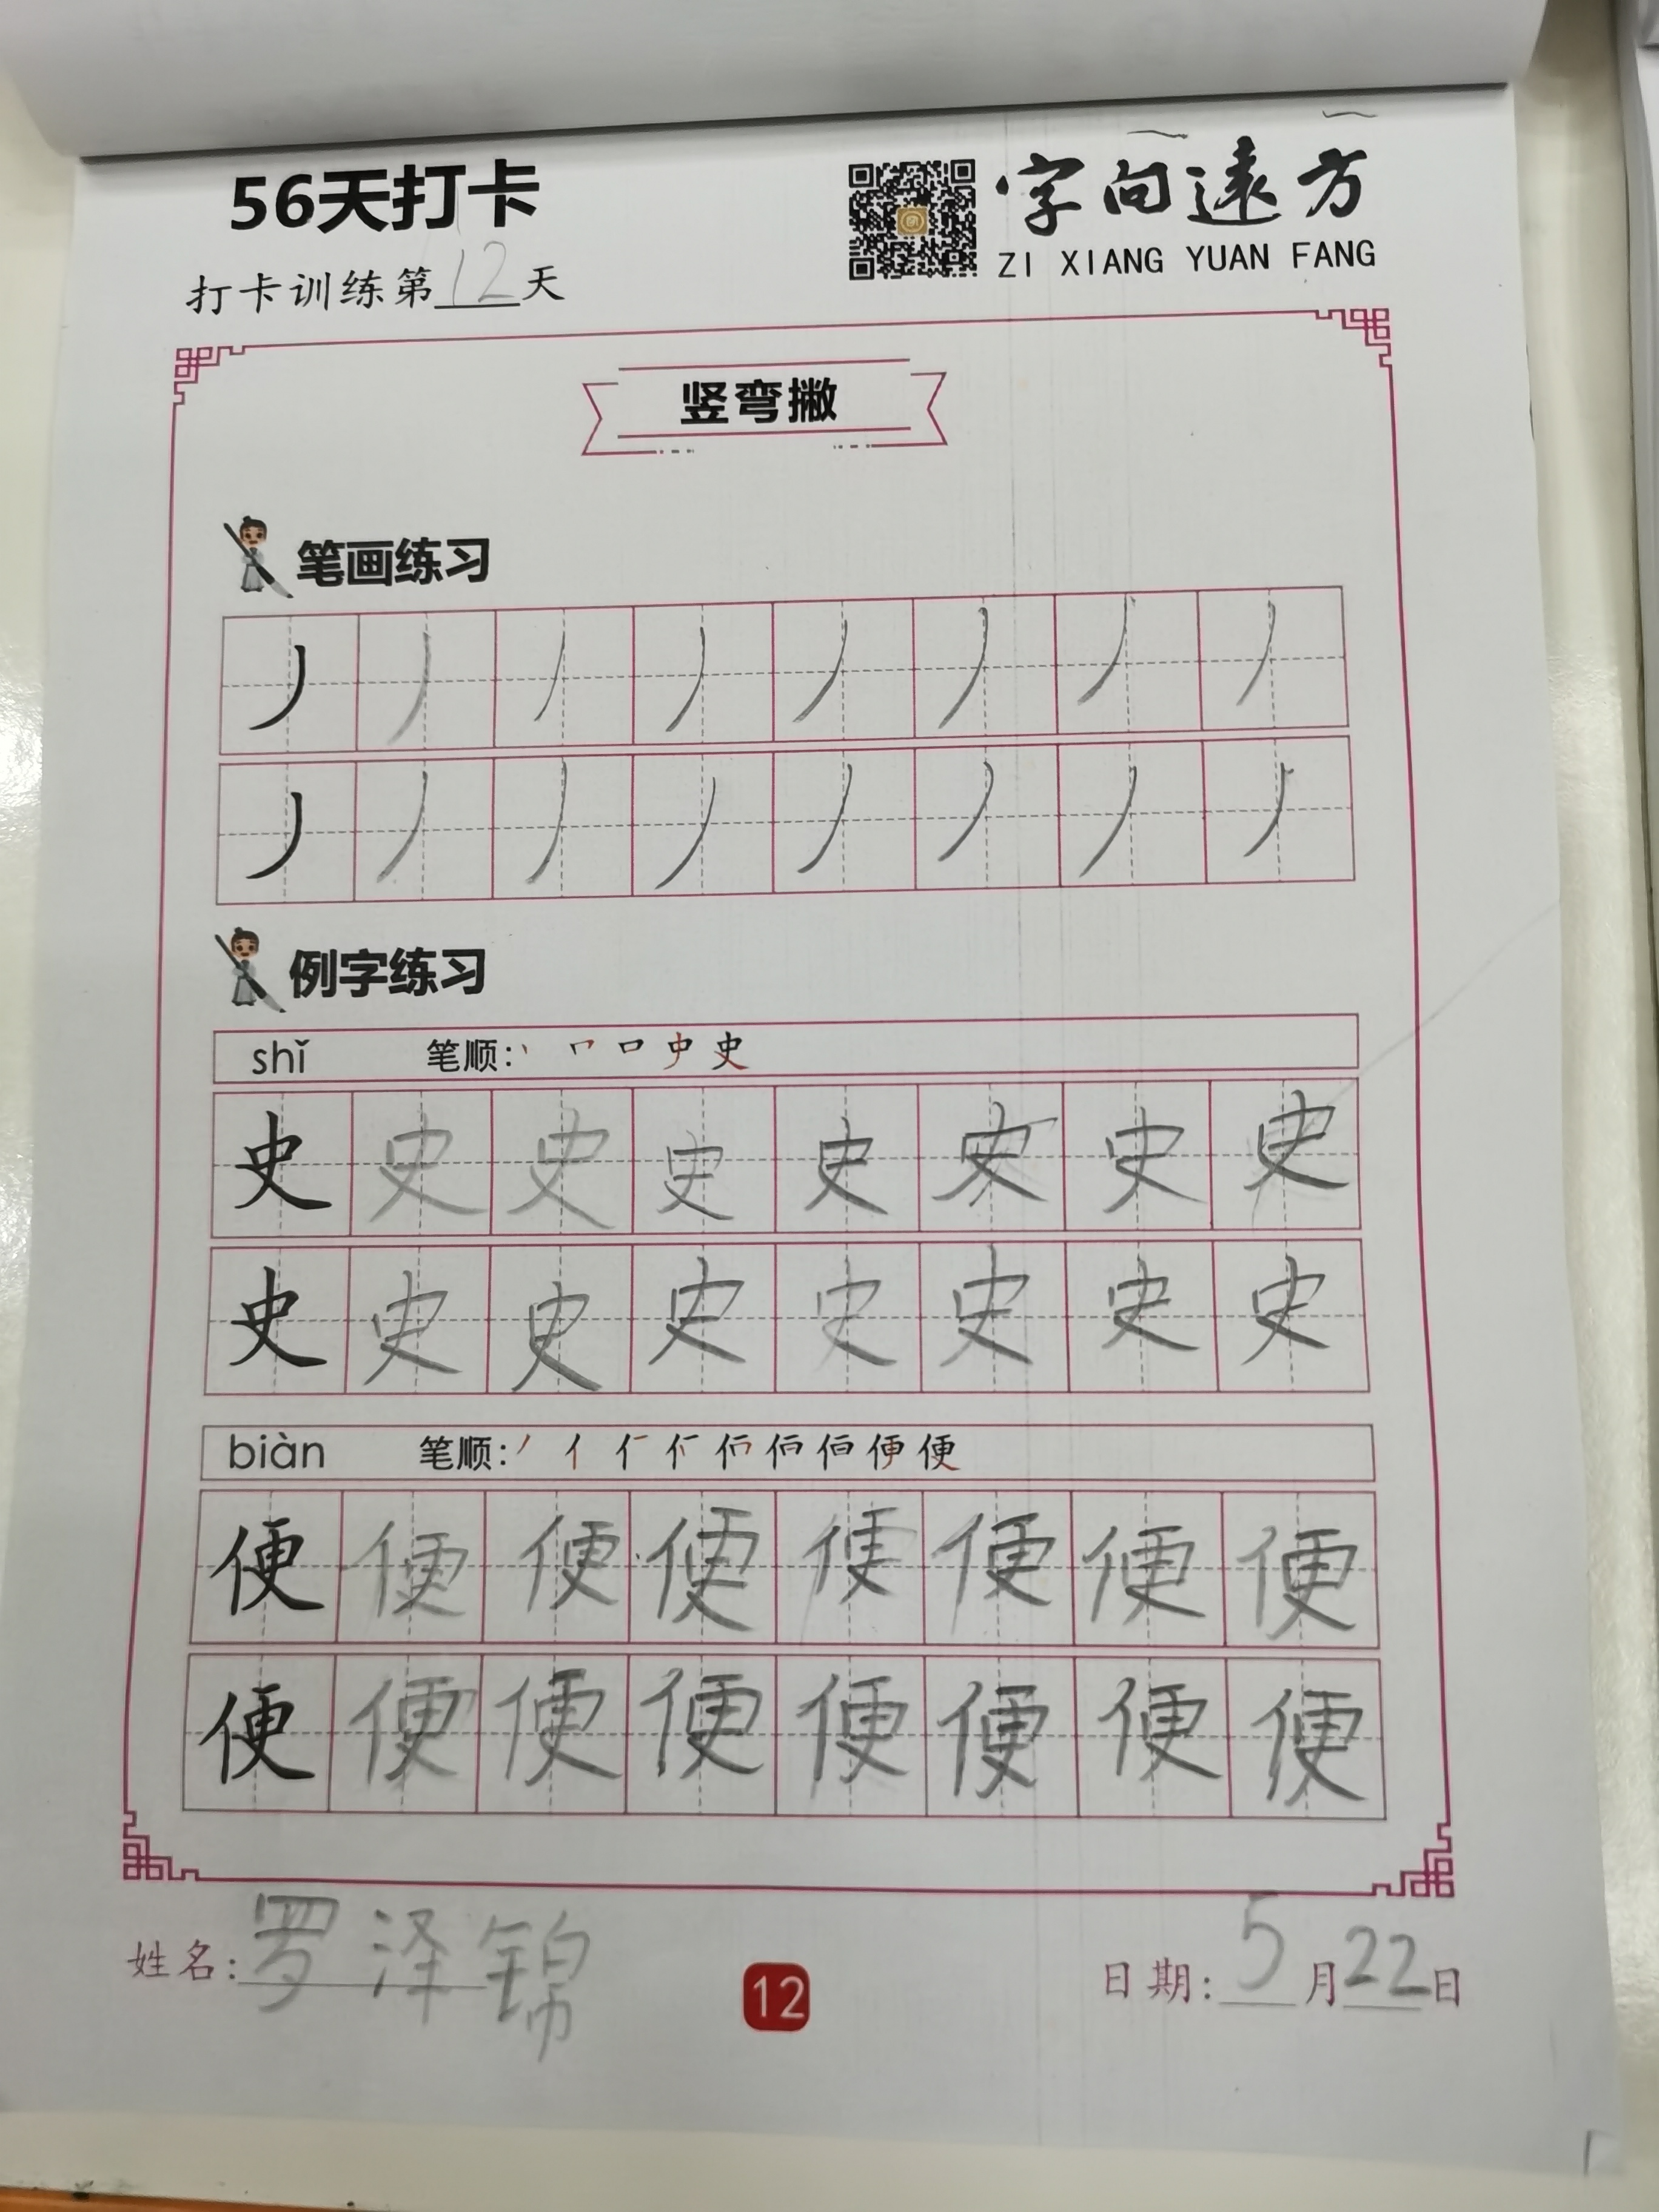 56天打卡
字向遠方
ZI XIANG YUAN FANG
打卡训练第12天
竖弯撇
笔画练习
丿丿丿丿丿丿丿丿
丿丿丿丿丿丿丿丿
例字练习
shǐ 笔顺:丶 𠃍 口 史 史
史史史史史史史史
史史史史史史史史
biàn 笔顺:丿 亻 便
便便便便便便便便
便便便便便便便便
姓名:罗泽锦
12
日期:5月22日